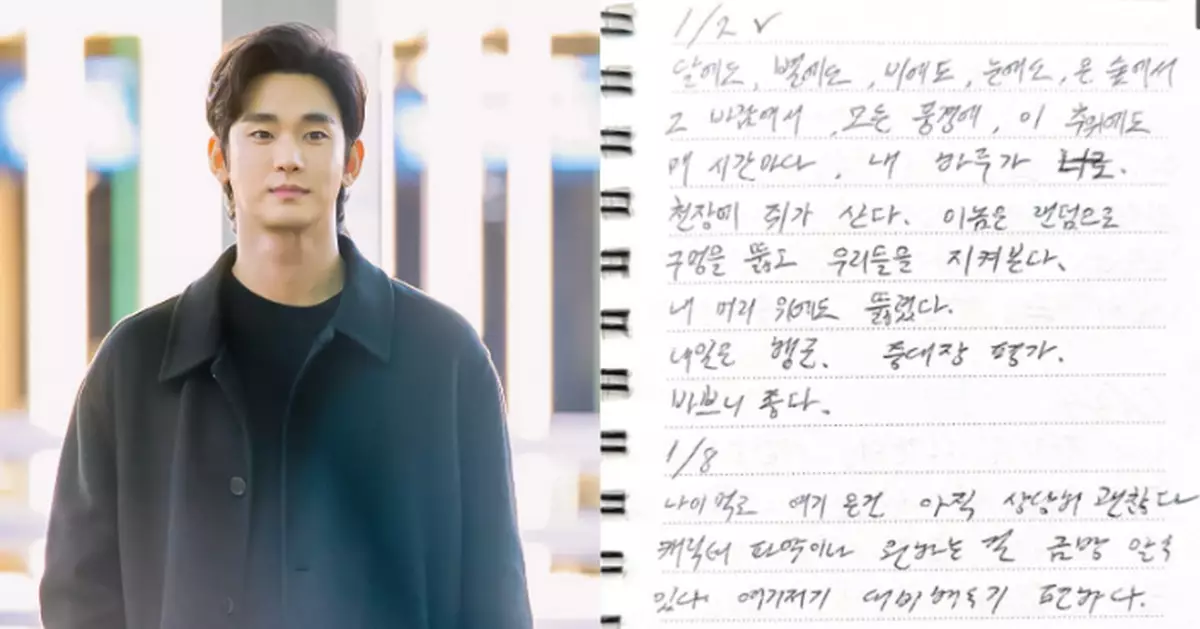 1/2 ✓
달에도, 별에도, 비에도, 눈에도, 온 숲에서
그 바람에서, 모든 풍경에, 이 추위에도
매 시간마다, 내 하루가 너로.
천장에 쥐가 산다. 이놈은 랜덤으로
구멍을 뚫고 우리들을 지켜본다.
내 머리 위에도 뚫렸다.
내일은 행군. 중대장 평가.
바쁘니 좋다.
1/8
나이 먹고 여기 온건 아직 상당히 괜찮다
캐릭터 파악이나 원하는 걸 금방 알 수
있다 여기저기 대비하기 편하다.